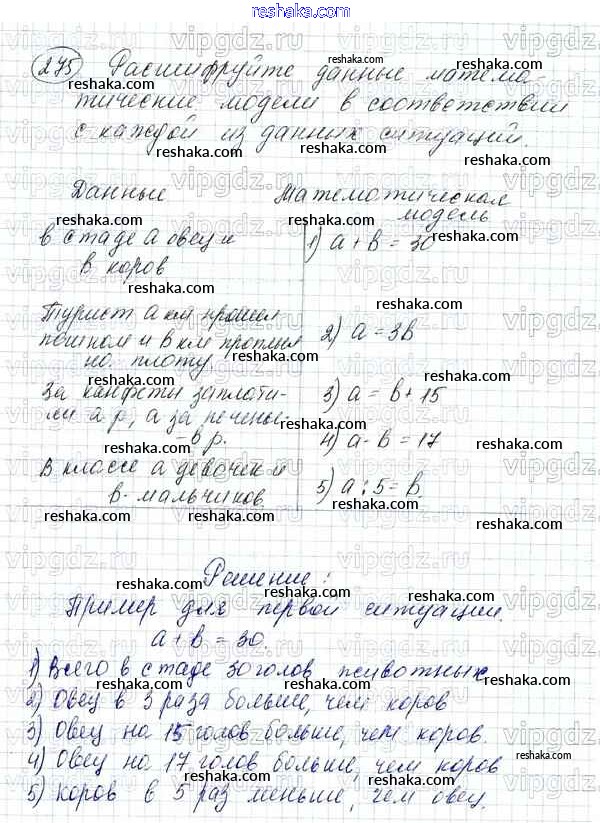 reshaka.com
275 Расшифруйте данные матема-
тические модели в соответствии
с каждой из данных ситуаций.
Данные Математическая
модель
в стаде a овец и
в коров
1) a + b = 30
Турист a км прошел
пешком и в км проплыл
по плоту.
2) a = 3b
За конфеты заплати-
ли a р, а за печенье
– в р.
3) a = b + 15
4) a - b = 17
В классе a девочек и
в - мальчиков
5) a : 5 = b.
Решение:
Пример для первой ситуации.
a + b = 30.
1) Всего в стаде 30 голов животных
2) Овец в 3 раза больше, чем коров
3) Овец на 15 голов больше, чем коров.
4) Овец на 17 голов больше, чем коров
5) Коров в 5 раз меньше, чем овец.